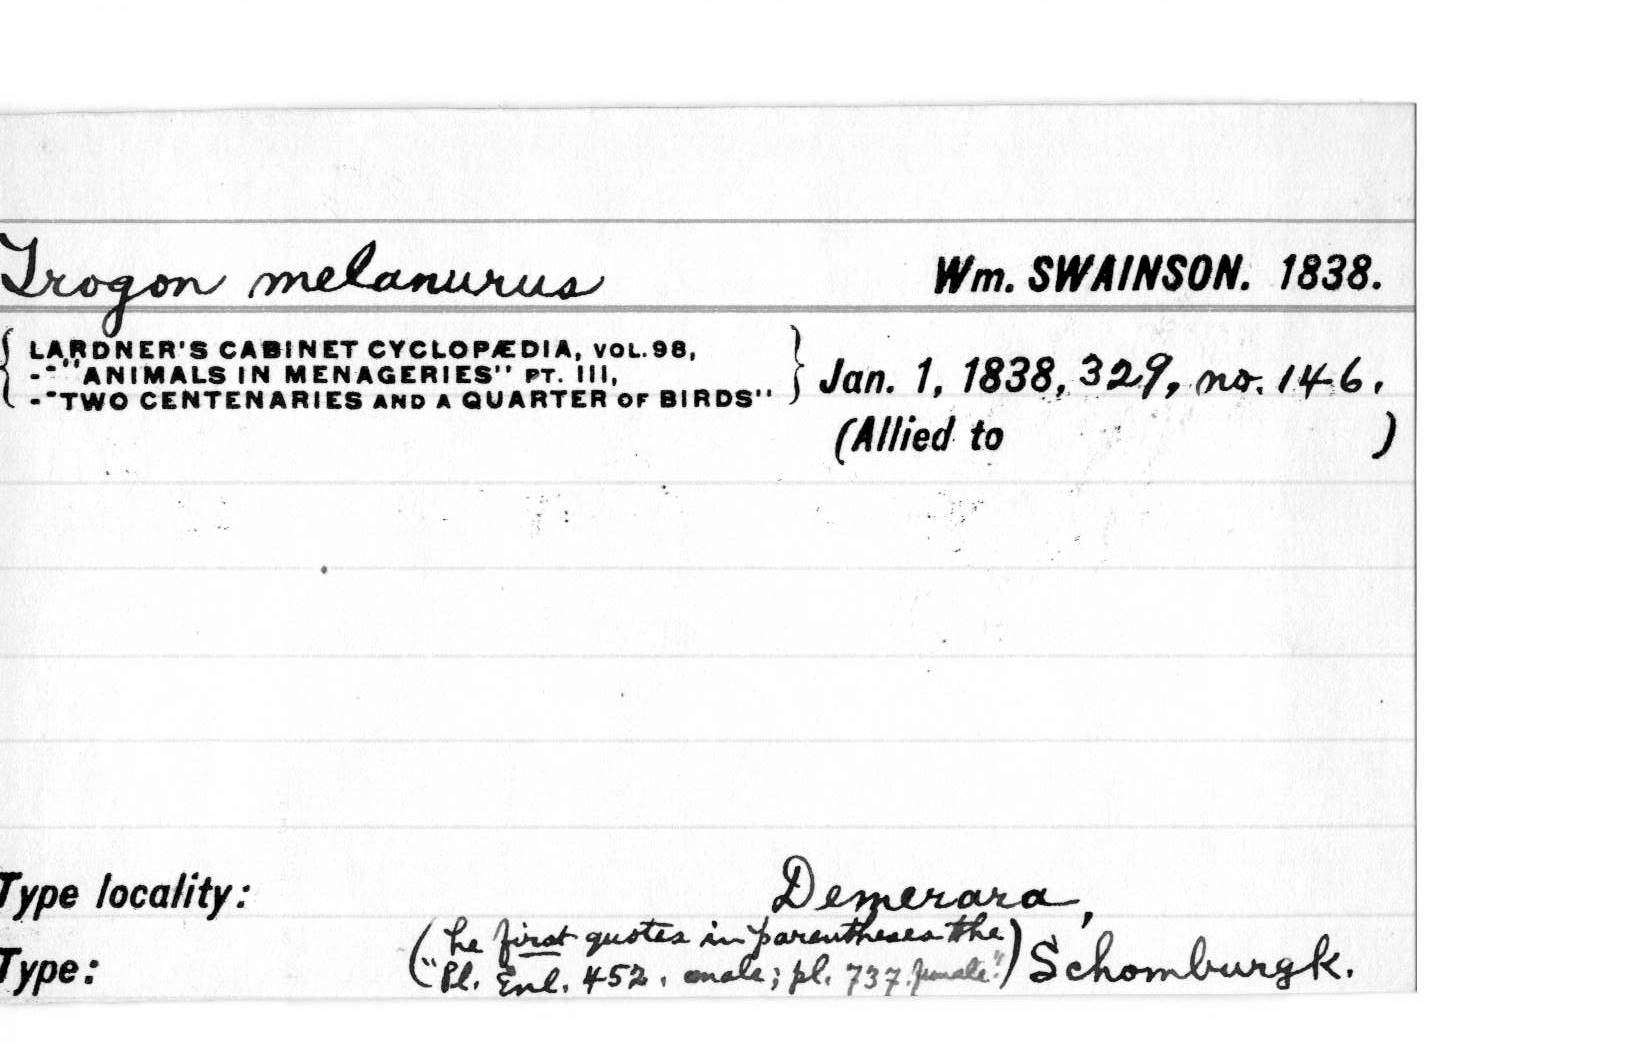 Trogon melanurus Wm. SWAINSON. 1838.
{ LARDNER'S CABINET CYCLOPÆDIA, VOL. 98,
-"ANIMALS IN MENAGERIES" PT. III,
-"TWO CENTENARIES AND A QUARTER OF BIRDS" } Jan. 1, 1838, 329, no. 146.
(Allied to )
Type locality: Demerara,
(he first quotes in parentheses the
Type: "Pl. Enl. 452, male; pl. 737, female".) Schomburgk.